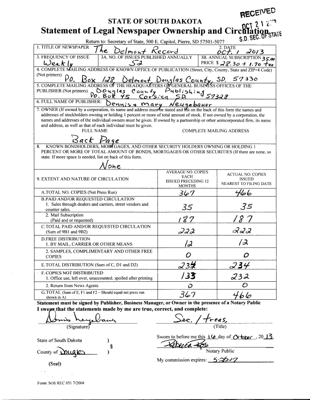 RECEIVED
OCT 21 2013
S.D. SEC. OF STATE
STATE OF SOUTH DAKOTA
Statement of Legal Newspaper Ownership and Circulation
Return to: Secretary of State, 500 E. Capitol, Pierre, SD 57501-5077
1. TITLE OF NEWSPAPER The Delmont Record
2. DATE Oct. 1 2013
3. FREQUENCY OF ISSUE Weekly
3A. NO. OF ISSUES PUBLISHED ANNUALLY 52
3B. ANNUAL SUBSCRIPTION PRICE $
4. COMPLETE MAILING ADDRESS OF KNOWN OFFICE OF PUBLICATION (Street, City, County, State and ZIP+4 Code)
(Not printers) P.O. Box 128 Delmont, Douglas County, SD 57330
5. COMPLETE MAILING ADDRESS OF THE HEADQUARTERS OF GENERAL BUSINESS OFFICES OF THE
PUBLISHER (Not printers) Douglas County Publishing
P.O. Box 45 Corsica SD 57328
6. FULL NAME OF PUBLISHER: Dennis & Mary Neugebauer
7. OWNER (If owned by a corporation, its name and address must be stated and also on the back of this form the names and
addresses of stockholders owning or holding 1 percent or more of total amount of stock. If not owned by a corporation, the
names and addresses of the individual owners must be given. If owned by a partnership or other unincorporated firm, its name
and address, as well as that of each individual must be given.
FULL NAME
COMPLETE MAILING ADDRESS
Back Page
8. KNOWN BONDHOLDERS, MORTGAGES, AND OTHER SECURITY HOLDERS OWNING OR HOLDING 1
PERCENT OR MORE OF TOTAL AMOUNT OF BONDS, MORTGAGES OR OTHER SECURITIES (If there are none, so
state. If more space is needed, list on back of this form.
None
9. EXTENT AND NATURE OF CIRCULATION
AVERAGE NO. COPIES EACH ISSUED PRECEDING 12 MONTHS
ACTUAL NO. COPIES ISSUED NEAREST TO FILING DATE
A. TOTAL NO. COPIES (Net Press Run) 367 466
B. PAID AND/OR REQUESTED CIRCULATION
1. Sales through dealers and carriers, street vendors and
counter sales. 35 35
2. Mail Subscription
(Paid and or requested) 187 187
C. TOTAL PAID AND/OR REQUESTED CIRCULATION
(Sum of 9B1 and 9B2) 222 222
D. FREE DISTRIBUTION
1. BY MAIL, CARRIER OR OTHER MEANS 12 12
2. SAMPLES, COMPLIMENTARY AND OTHER FREE
COPIES 0 0
E. TOTAL DISTRIBUTION (Sum of C, D1 and D2) 234 234
F. COPIES NOT DISTRIBUTED
1. Office use, left over, unaccounted, spoiled after printing 133 232
2. Return from News Agents 0 0
G. TOTAL (Sum of E, F1 and F2 - Should equal net press run
shown in A) 367 466
Statement must be signed by Publisher, Business Manager, or Owner in the presence of a Notary Public
I swear that the statements made by me are true, correct, and complete:
Sec. / treas.
(Signature) (Title)
State of South Dakota )
Sworn to before me this 16 day of October, 2013
County of Douglas )
Notary Public
(Seal)
My commission expires:
Form: SOS REC 051 7/2004